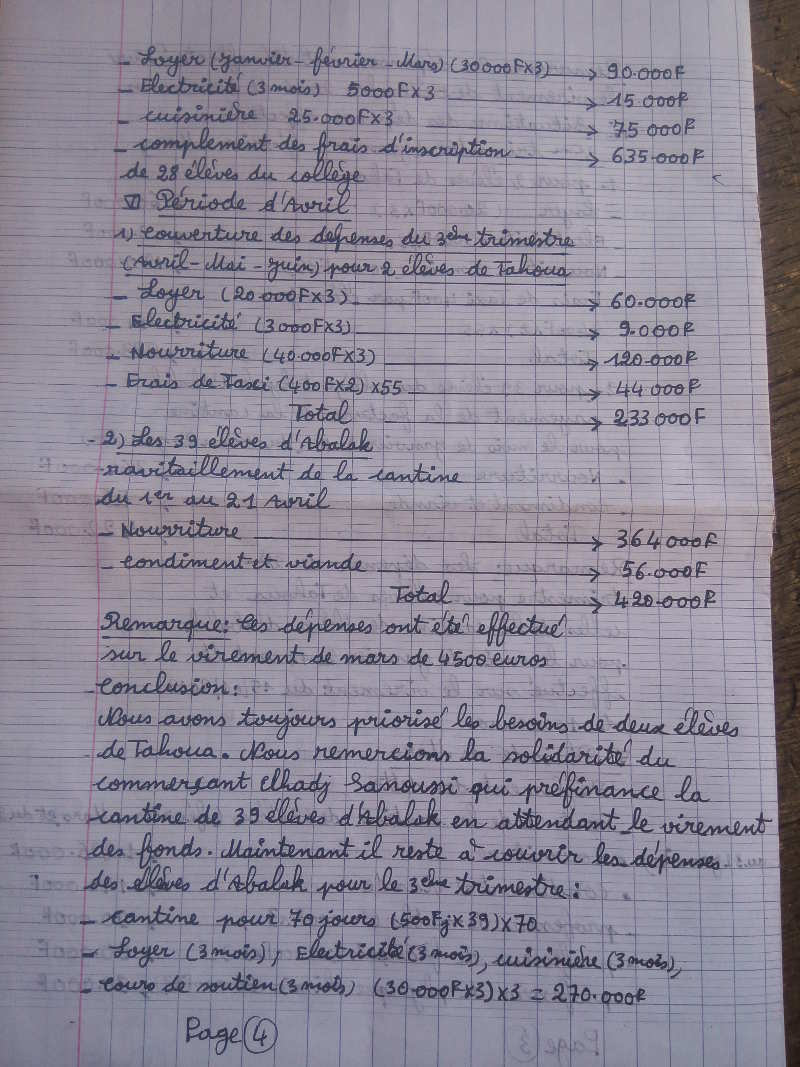 - Loyer (Janvier - février - Mars) (30000F×3) → 90.000F
- Electricité (3 mois) 5000F×3 → 15.000F
- cuisinière 25.000F×3 → 75 000F
- complement des frais d'inscription → 635.000F
de 28 élèves du collège
VI Période d'Avril
1) couverture des dépenses du 3ème trimestre
(Avril - Mai - Juin) pour 2 élèves de Tahoua
- Loyer (20.000F×3) → 60.000F
- Electricité (3000F×3) → 9.000F
- Nourriture (40.000F×3) → 120.000F
- Frais de Taxi (400F×2)×55 → 44 000F
Total → 233 000F
- 2) Les 39 élèves d'Abalak
navitaillement de la cantine
du 1er au 21 Avril
- Nourriture → 364 000F
- condiment et viande → 56.000F
Total → 420.000F
Remarque: Ces dépenses ont été effectué
sur le virement de mars de 4500 euros
- Conclusion:
Nous avons toujours priorisé les besoins de deux élèves
de Tahoua. Nous remercions la solidarité du
commerçant elhadj Sanoussi qui préfinance la
cantine de 39 élèves d'Abalak en attendant le virement
des fonds. Maintenant il reste à couvrir les dépenses
des élèves d'Abalak pour le 3ème trimestre:
- cantine pour 70 jours (500Fj×39)×70
- Loyer (3 mois), Electricité (3 mois), cuisinière (3 mois),
- cours de soutien (3 mois) (30.000F×3)×3 = 270.000F
Page 4